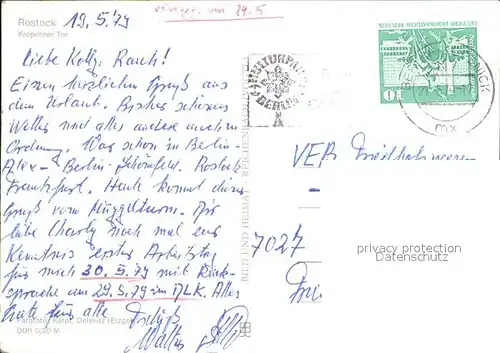 Rostock
Kröpeliner Tor
19.5.79
24.5
Liebe Kollg. Rauch!
Einen herzlichen Gruß aus
dem Urlaub. Bisher schönes
Wetter und alles andere auch in
Ordnung. War schon in Berlin-
Alex - Berlin-Schönefeld. Rostock
Frankfurt. Heute kommt dieser
Gruß vom Müggelturm. Für
Charly noch mal zur
Kenntnis erster Arbeitstag
für mich 30.5.79 mit Rück-
sprache am 29.5.79 im DLK. Alles
Gute für alle
Walter
DDR 0,20 M
BILD UND HEIMAT REICHENBACH
KULTURPARK
BERLIN
DEUTSCHE DEMOKRATISCHE REPUBLIK
10
VEB
7027
privacy protection
Datenschutz